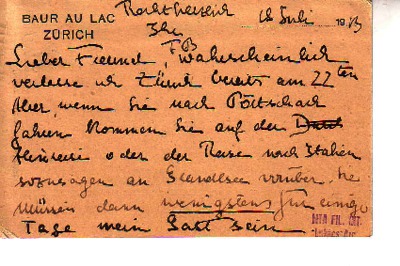 BAUR AU LAC
ZÜRICH
18 Juli 1913
Ihr
FB
Lieber Freund, wahrscheinlich
verlasse ich Zürich bereits am 22ten
Aber, wenn Sie nach Pörtschach
fahren kommen Sie auf der
Hinreise oder der Reise nach Italien
sozusagen am Grundlsee vorüber. Sie
müssen dann wenigstens für einige
Tage mein Gast sein